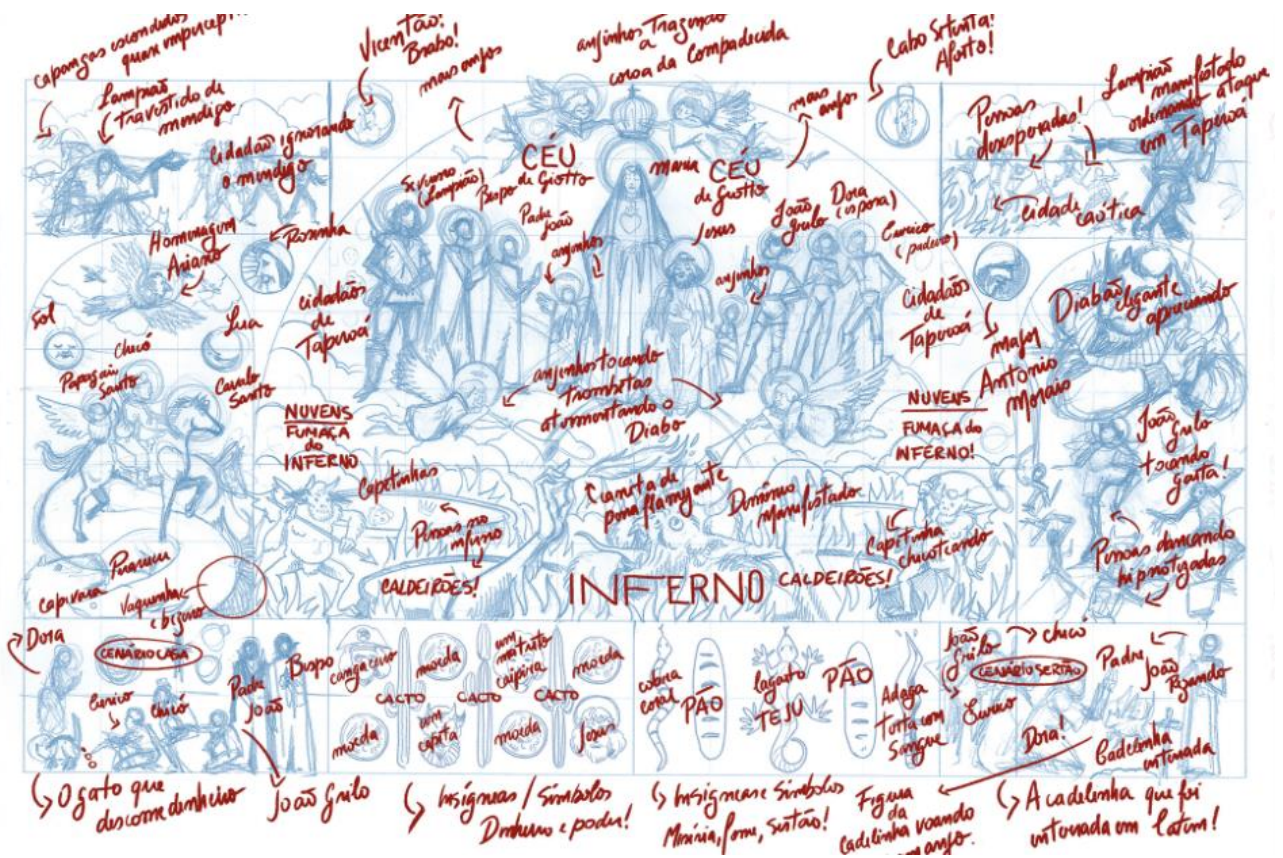 capangas escondidos
quase
Lampião
travestido de
mendigo
cidadão ignorando
o mendigo
Vicentão!
Brabo!
mais anjos
anjinhos trazendo
a
coroa da Compadecida
Cabo Setenta!
Aflito!
mais
anjos
Pessoas
desesperadas!
Lampião
manifestado
ordenando ataque
em Taperoá
cidade caótica
Homenagem
Ariano
Rosinha
sol
Lua
Chicó
Papagaio
Santo
Cavalo
Santo
CÉU
de Giotto
CÉU
de Giotto
Severino
(Lampião)
Bispo
Padre
João
anjinhos
Maria
Jesus
anjinhos
João
Grilo
Dora
(esposa)
Eurico
(padeiro)
cidadãos
de
Taperoá
Cidadãos
de
Taperoá
major
Antônio
Morais
Diabão gigante
apreciando
João
Grilo
tocando
gaita!
Pessoas dançando
hipnotizadas
anjinhos tocando
trombetas
atormentando o
Diabo
NUVENS
FUMAÇA
do
INFERNO
NUVENS
FUMAÇA do
INFERNO!
Capetinhas
Pessoas no
inferno
CALDEIRÕES!
Demônio
manifestado
Capetinha
chicoteando
INFERNO
CALDEIRÕES!
capivara
Vaquinha
e bezerro
Dora
CENÁRIO CASA
Eurico
Chicó
Padre
João
Bispo
cangaceiro
moeda
um
matuto
caipira
moeda
CACTO
CACTO
CACTO
moeda
um
capeta
moeda
Jesus
cobra
coral
PÃO
lagarto
TEJU
PÃO
Adaga
torta com
sangue
João
Grilo
chicó
CENÁRIO SERTÃO
Padre
João
Rezando
Eurico
Dora!
Cadelinha
enterrada
O gato que
descome dinheiro
João Grilo
Insígneas / Símbolos
Dinheiro e poder!
Insígneas e Símbolos
Miséria, fome, sertão!
Figura
da
cadelinha voando
anjo.
A cadelinha que foi
enterrada em latim!